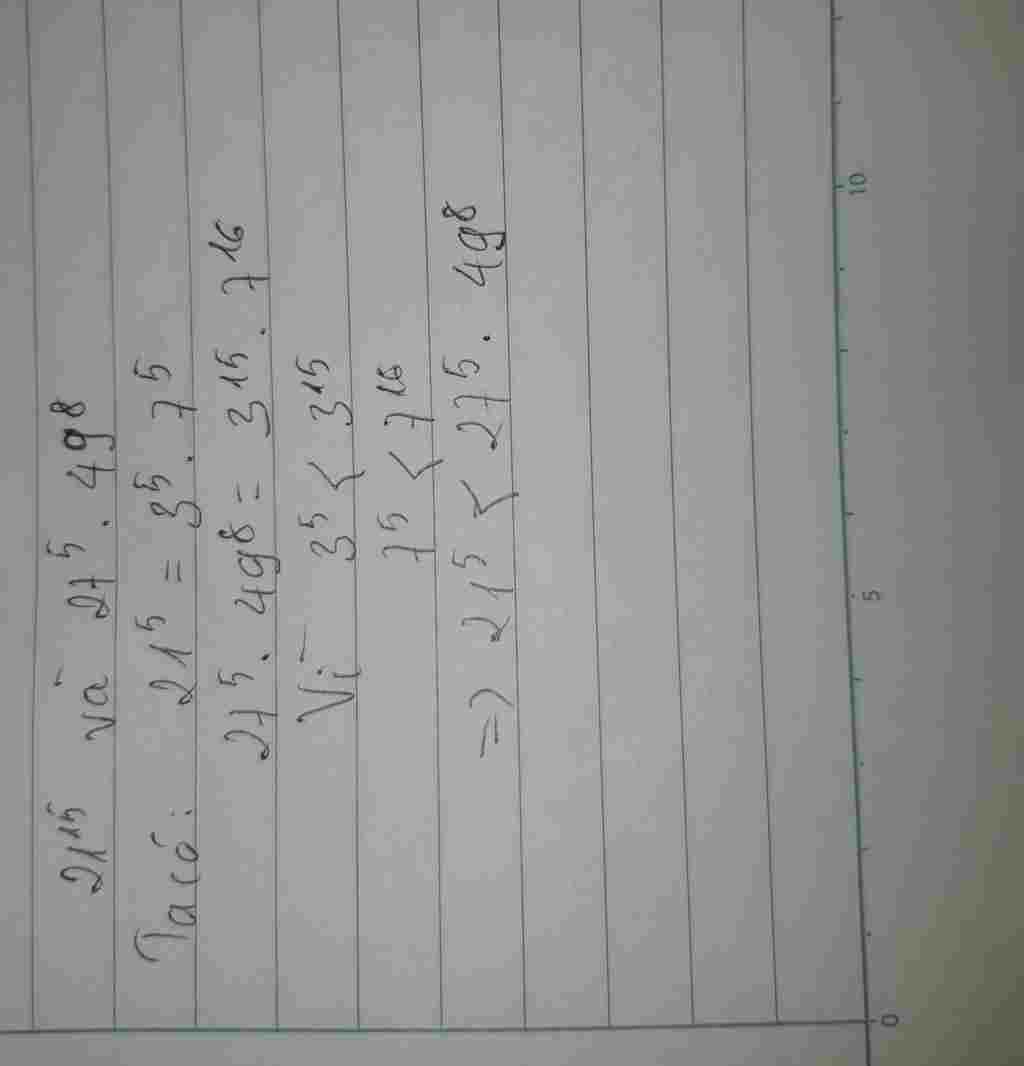 21¹⁵ và 27⁵ . 49⁸
Ta có : 21⁵ = 3⁵ . 7⁵
27⁵ . 49⁸ = 3¹⁵ . 7¹⁶
Vì 3⁵ < 3¹⁵
7⁵ < 7¹⁶
=> 21⁵ < 27⁵ . 49⁸
0 5 10